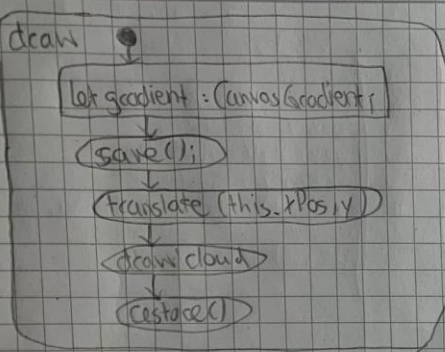 draw
let gradient : CanvasGradient;
save();
translate (this.xPos, y)
draw cloud
restore()